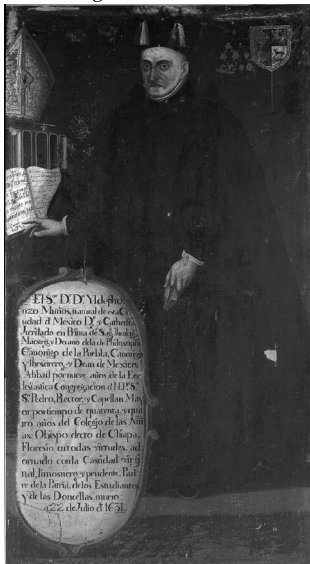 El Sr. D.D. Yldepho
nzo Muños, natural de esta Ciu
udad d Mexico Dr. y Cathedra.
Jurilado en Prima de Sag. Theolog.
Maestro, y Decano de la de Philosophia
Canonigo de la Puebla, Canonigo
y Thesorero, y Dean de Mexico,
Abbad por nueve años de la Ecc
lesiastica Congregacion d N.P.S.
S. Pedro, Rector, y Capellan May
or por tiempo de quarenta, y qua
tro años del Colegio de las Niñ
as, Obispo electo de Chiapa,
Florecio en todas virtudes, ad
ornado con la Castidad virgi
nal, limosnero, y prudente, Pad
re de la Patria, de los Estudiantes
y de las Doncellas, murio
a 22 de Julio d 1631.